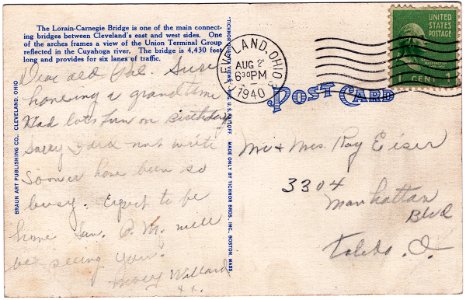 The Lorain-Carnegie Bridge is one of the main connect-
ing bridges between Cleveland's east and west sides. One
of the arches frames a view of the Union Terminal Group
reflected in the Cuyahoga river. The bridge is 4,430 feet
long and provides for six lanes of traffic.
CLEVELAND, OHIO
AUG 2
6 30 PM
1940
UNITED
STATES
POSTAGE
1 CENT
POST CARD
BRAUN ART PUBLISHING CO. CLEVELAND, OHIO.
MADE ONLY BY TICHNOR BROS., INC., BOSTON, MASS.
Dear all
having a grand time
Had lots fun on Birthday
Sorry I did not write
Sooner have been so
busy. Expect to be
home Sun. P. M. will
be seeing you.
Willard
Mr & Mrs Ray Eiser
3304
Manhattan
Blvd
Toledo, O.